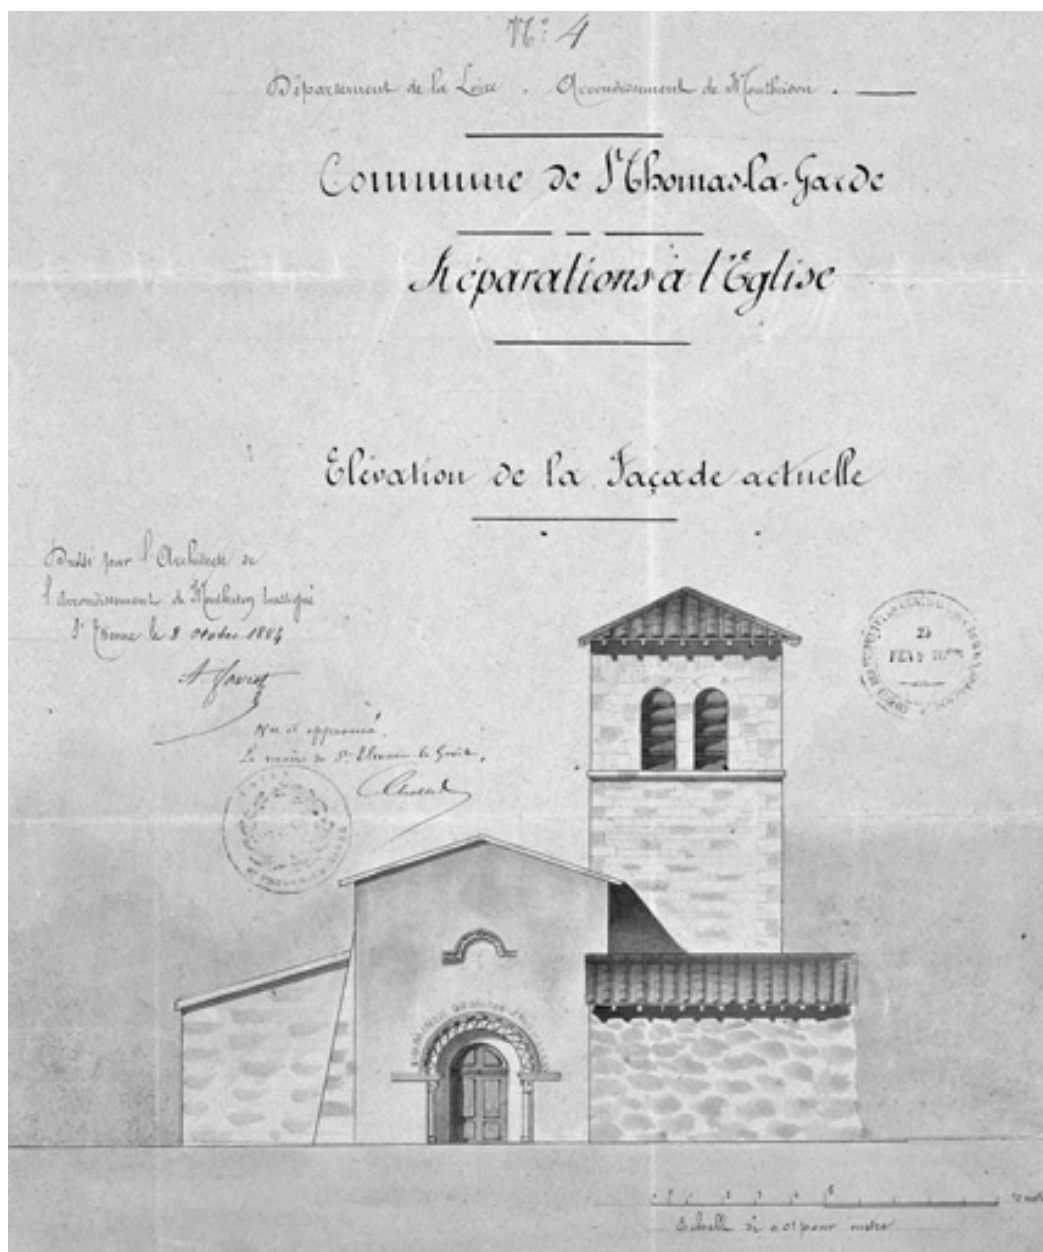 N° 4
Département de la Loire . Arrondissement de Montbrison .
Commune de St Thomas-la-Garde
Réparations à l'Eglise
Elévation de la Façade actuelle
Dressé par l'Architecte de
l'arrondissement de Montbrison soussigné
St Etienne le 8 octobre 1884
Vu et approuvé.
Le maire de St Thomas-la-Garde,
Echelle de 0.01 pour mètre